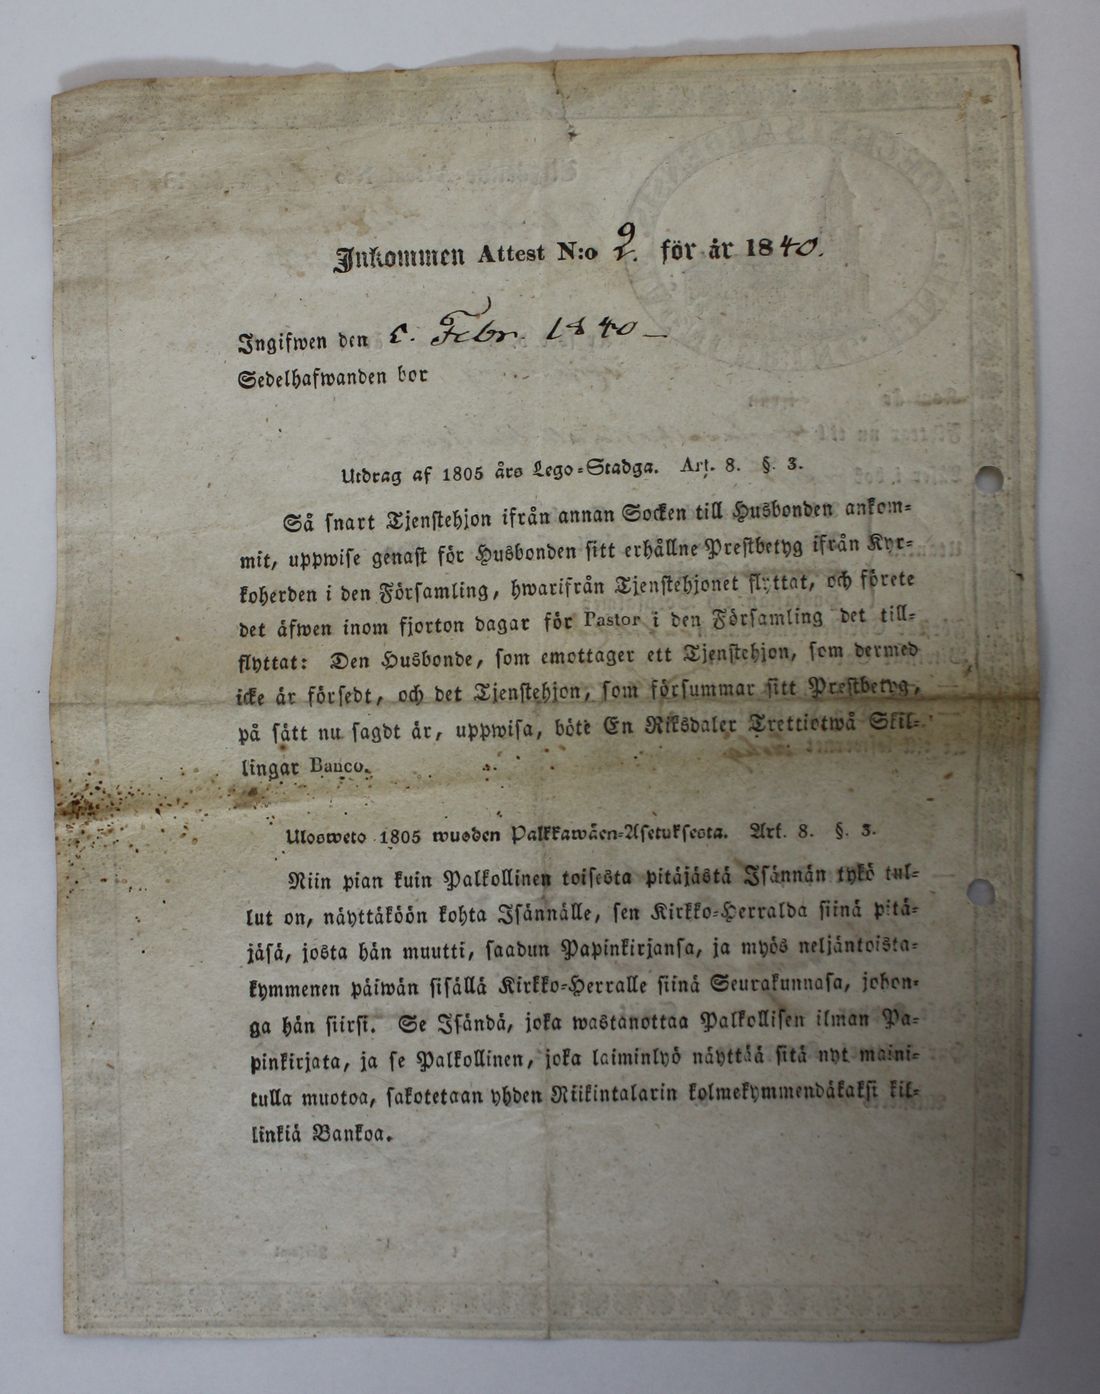 Inkommen Attest N:o 2. för år 1840.
Ingifwen den Febr. 1840 —
Sedelhafwanden bor
Utdrag af 1805 års Lego=Stadga. Art. 8. §. 3.
Så snart Tjenstehjon ifrån annan Socken till Husbonden ankom=
mit, uppwise genast för Husbonden sitt erhållne Prestbetyg ifrån Kyr=
koherden i den Församling, hwarifrån Tjenstehjonet flyttat, och förete
det äfwen inom fjorton dagar för Pastor i den Församling det till=
flyttat: Den Husbonde, som emottager ett Tjenstehjon, som dermed
icke är försedt, och det Tjenstehjon, som försummar sitt Prestbetyg,
på sätt nu sagdt är, uppwisa, böte En Riksdaler Trettiotwå Skil=
lingar Banco.
Ulosweto 1805 wuoden Palkkawäen=Asetuksesta. Art. 8. §. 3.
Niin pian kuin Palkollinen toisesta pitäjästä Isännän tykö tul=
lut on, näyttäköön kohta Isännälle, sen Kirkko=Herralda siinä pitä=
jäsä, josta hän muutti, saadun Papinkirjansa, ja myös neljäntoista=
kymmenen päiwän sisällä Kirkko=Herralle siinä Seurakunnasa, johon=
ga hän siirsi. Se Isändä, joka wastanottaa Palkollisen ilman Pa=
pinkirjata, ja se Palkollinen, joka laiminlyö näyttää sitä nyt maini=
tulla muotoa, sakotetaan yhden Riikintalarin kolmekymmendäkaksi kil=
linkiä Bankoa.